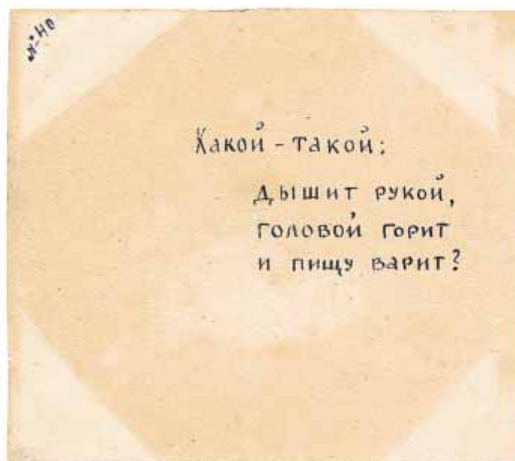 №40
Какой-такой:
дышит рукой,
головой горит
и пищу варит?